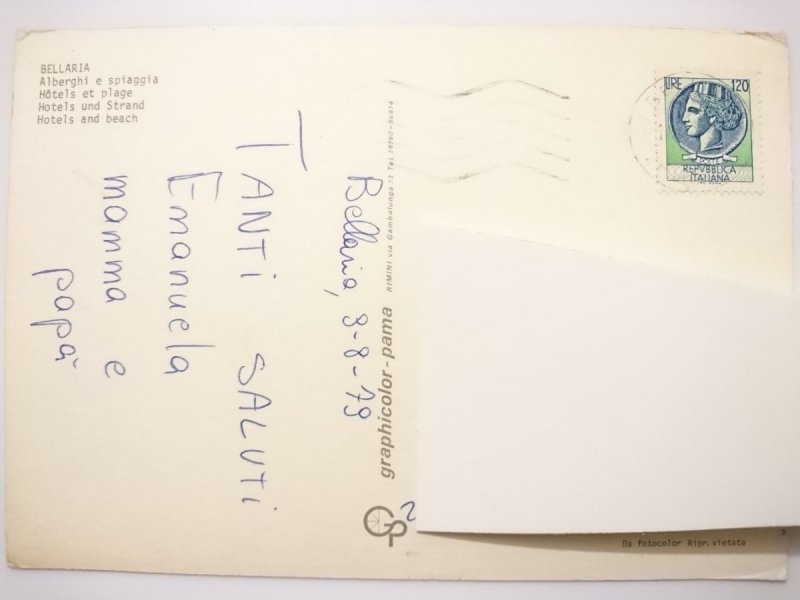 BELLARIA
Alberghi e spiaggia
Hôtels et plage
Hotels und Strand
Hotels and beach
LIRE 120
REPVBBLICA
ITALIANA
Bellaria, 9-8-79
TANTI SALUTI
Emanuela
mamma e
papà
graphicolor-pama RIMINI via Gambalunga 13 Tel. 28760-
GP
2
Da fotocolor Ripr. vietata